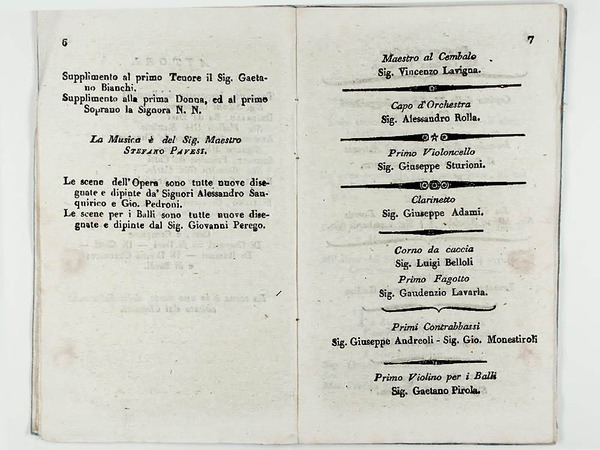 6
Supplimento al primo Tenore il Sig. Gaeta-
no Bianchi.
Supplimento alla prima Donna, ed al primo
Soprano la Signora N. N.
La Musica è del Sig. Maestro
STEFANO PAVESI.
Le scene dell'Opera sono tutte nuove dise-
gnate e dipinte da' Signori Alessandro San-
quirico e Gio. Pedroni.
Le scene per i Balli sono tutte nuove dise-
gnate e dipinte dal Sig. Giovanni Perego.
7
Maestro al Cembalo
Sig. Vincenzo Lavigna.
Capo d'Orchestra
Sig. Alessandro Rolla.
Primo Violoncello
Sig. Giuseppe Sturioni.
Clarinetto
Sig. Giuseppe Adami.
Corno da caccia
Sig. Luigi Belloli
Primo Fagotto
Sig. Gaudenzio Lavaria.
Primi Contrabbassi
Sig. Giuseppe Andreoli - Sig. Gio. Monestiroli
Primo Violino per i Balli
Sig. Gaetano Pirola.